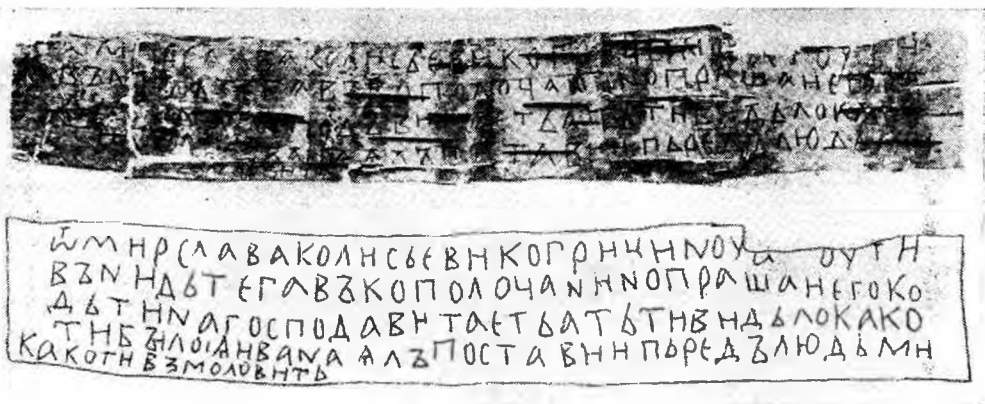 ѾМИРСЛАВАКОЛИСЬЕВИКОГРИЦИНОУА ОУТИ
ВЪНИДЬТЕГАВЪКОПОЛОЧАНИНОПРАШАИЕГОКО
ДЬТИНАГОСПОДАВИТАЕТЬАТЬТИВИДЬЛОКАКО
ТИБЪИЛОІѦИВАНАѦЛЪПОСТАВИИПЬРЕДЪЛЮДЬМИ
КАКОТИВЗМОЛОВИТЬ